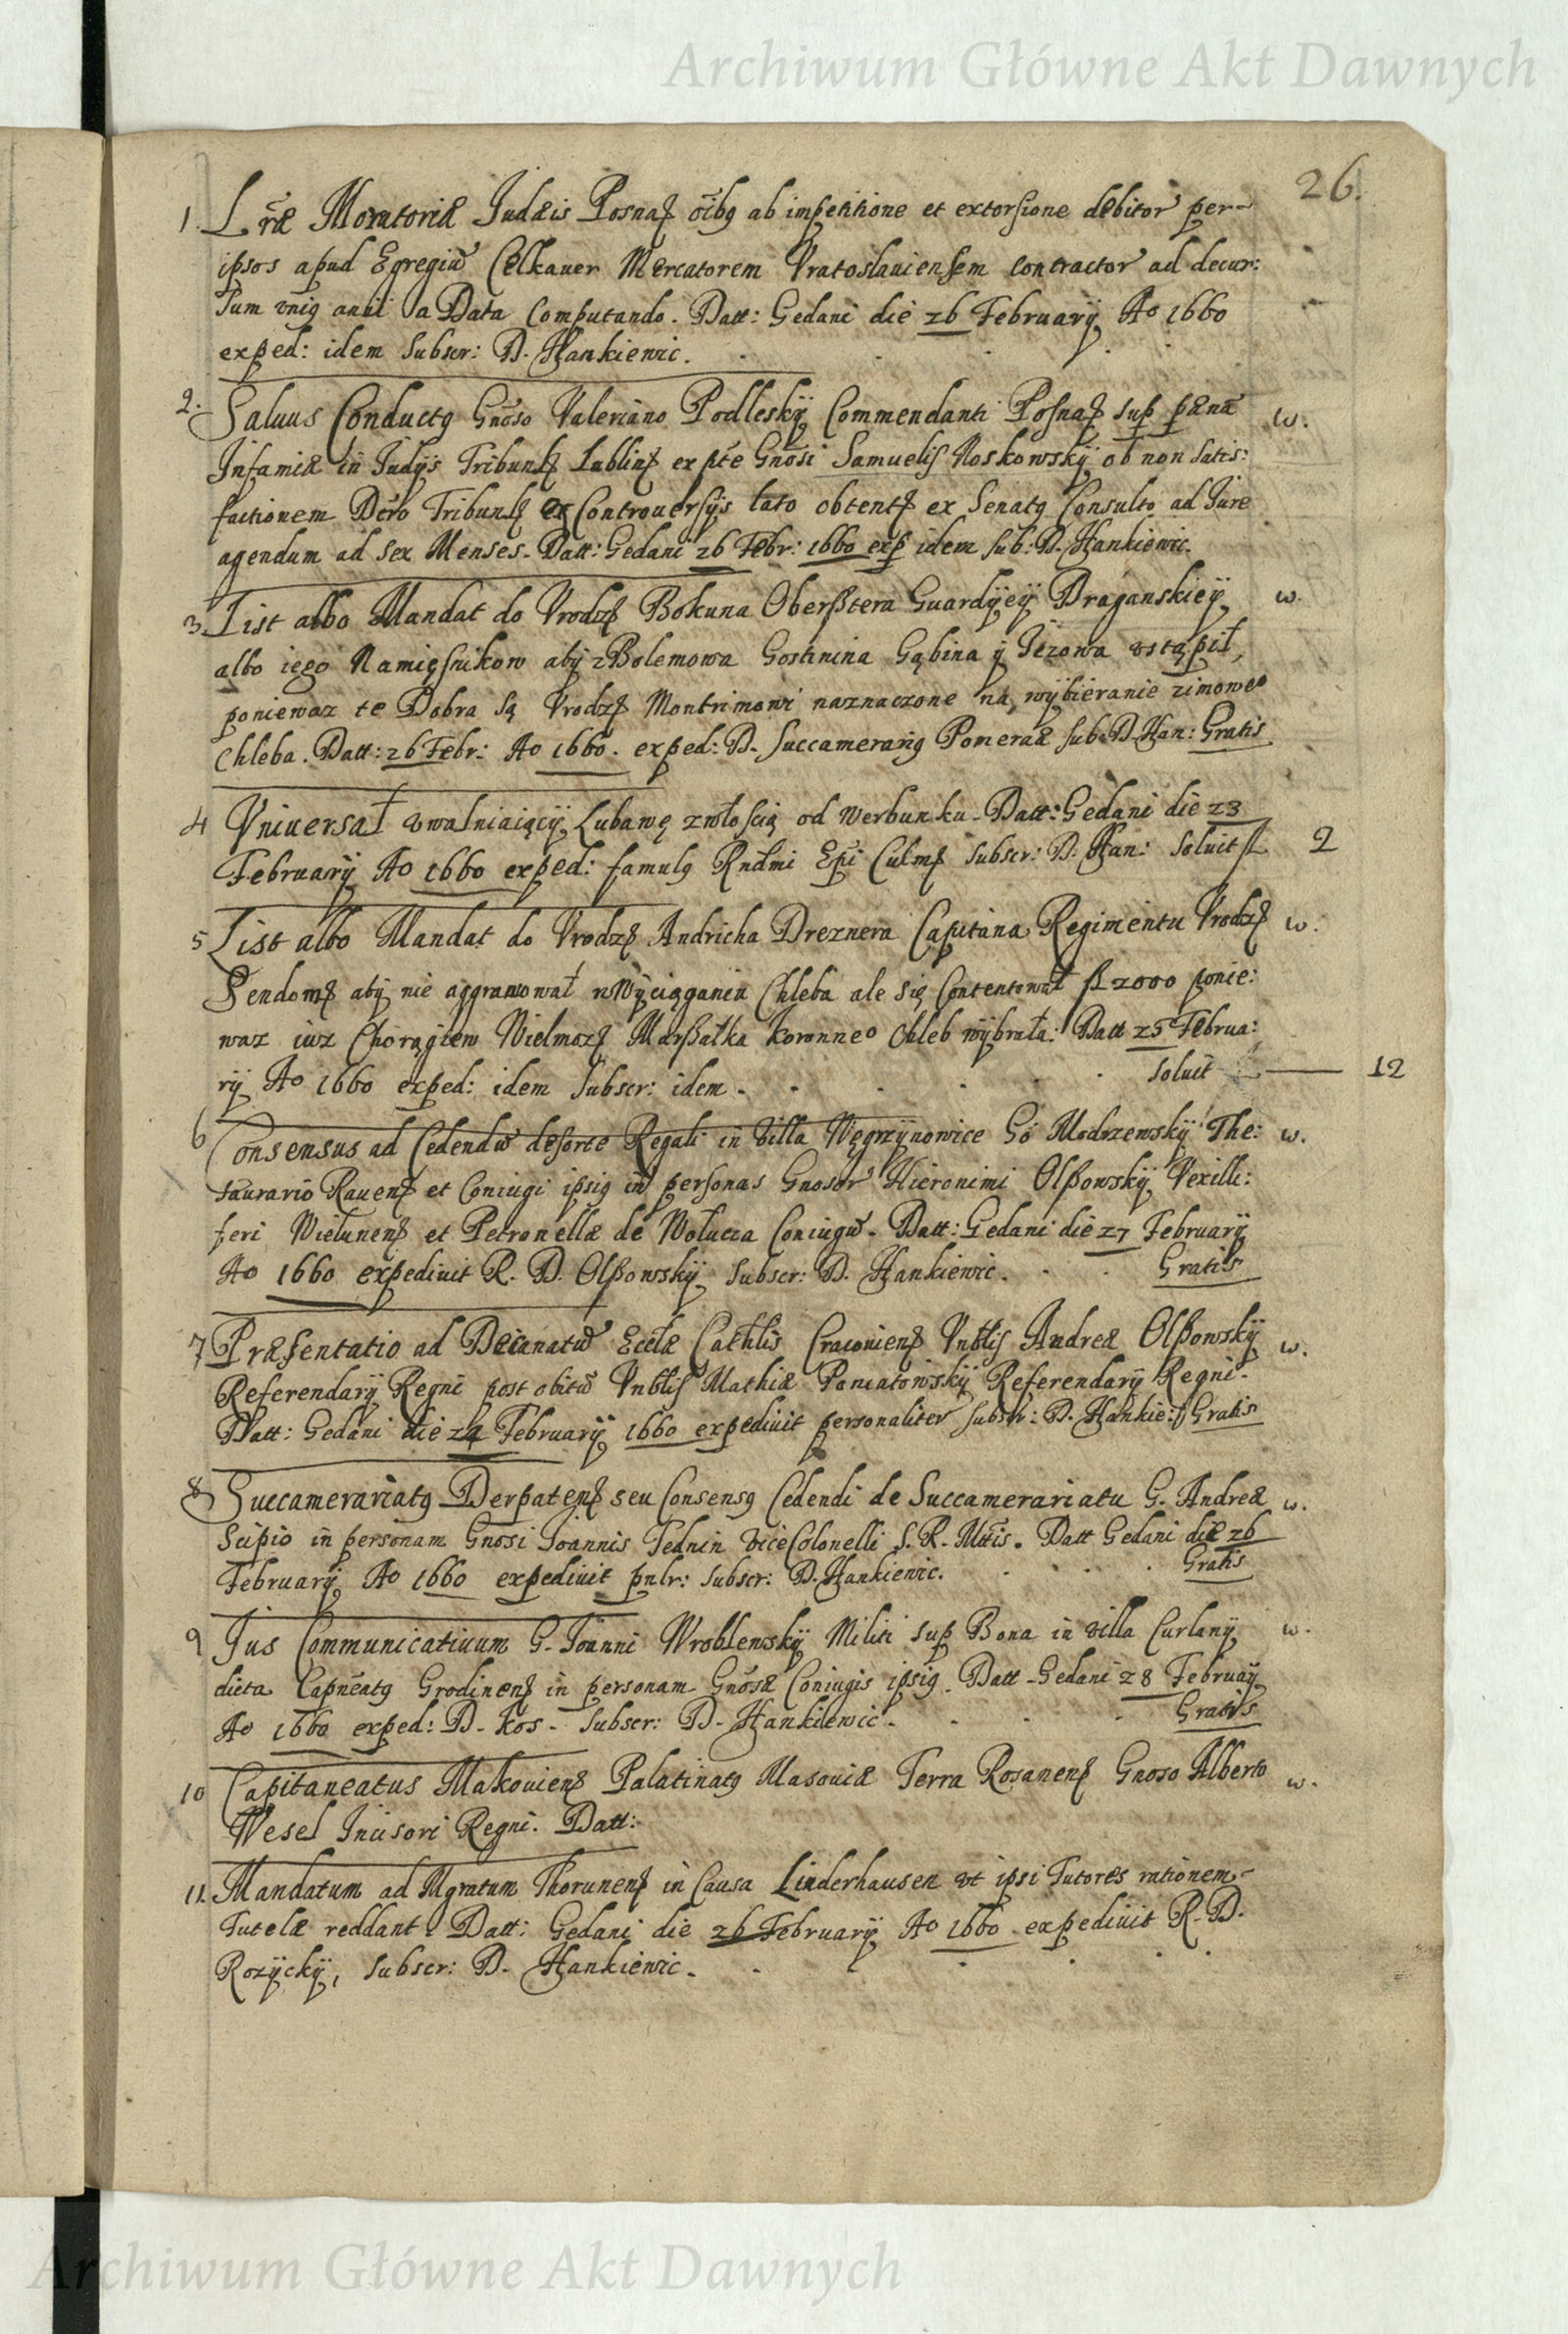 Archiwum Główne Akt Dawnych
26.
1. Lr̃æ Moratoriæ Judæis Posnaȝ oĩbꝯ ab impetitione et extorsione debitor per-
ipsos apud Egregiũ Celkauer Mercatorem Vratoslauiensem contractor ad decur:
sum vniꝯ anni a Data Computando. Datt: Gedani die 26 February Ao 1660
exped: idem Subscr: D. Hankiewic.
2. Saluus Conductꝯ Gñoso Valeriano Podlesky Commendanti Posnaȝ sup pænã w.
Infamiæ in Judijs Tribunȝ Lublinȝ ex pte Gñosi Samuelis Noskowsky ob non Satis:
factionem Dcro Tribunȝ ex Controuersijs lato obtentȝ ex Senatꝯ Consulto ad Jure
agendum ad Sex Menses. Datt: Gedani 26 Febr: 1660 exp idem Sub: D. Hankiewic.
3. List albo Mandat do Vrodzȝ Bokuna Oberßtera Guardyey Draganskiey w.
albo iego Namięsnikow aby z Bolemowa Gostinina Gąbina y Jeżowa vstąpił,
poniewaz te Dobra Są Vrodzȝ Montrimowi naznaczone na wybieranie zimoweo
Chleba. Datt: 26 Febr: Ao 1660. exped: D. Succamerariꝯ Pomeraæ Sub: D. Han: Gratis
4 Vniuersał vwalniaiący Lubawę z włoscią od werbunku. Datt: Gedani die 23
February Ao 1660 exped: famulꝯ Rñdmi Epi Culmȝ Subscr: D. Han: Soluit fl 2
5 List albo Mandat do Vrodzȝ Andricha Dreznera Capitana Regimentu Vrodzȝ w.
Sendomȝ aby nie aggrawował w Wyciąganiu Chleba ale Się Contentował fl 2000 ponie:
waz iuz Chorągiew Wielmozȝ Marßałka Koronneo Chleb wybrała: Datt 25 Februa:
ry Ao 1660 exped: idem Subscr: idem. Soluit 12
6 Consensus ad Cedendũ de Sorte Regali in Villa Węgrzynowice Gõ Modrzewsky The: w.
saurario Rauenȝ et Coniugi ipsiꝯ in personas Gnosor Hieronimi Olßowsky Vexilli:
feri Wielunenȝ et Petronellæ de Wołucza Coniugũ. Datt: Gedani die 27 February
Ao 1660 expediuit R. D. Olßowsky Subscr: D. Hankiewic. Gratis
7 Præsentatio ad Decanatũ Ecclæ Cathlis Cracouienȝ Vnblis Andreæ Olßowsky w.
Referendary Regni post obitũ Vnblis Mathiæ Poniatowsky Referendary Regni.
Datt: Gedani die 24 February 1660 expediuit personaliter Subscr: D. Hankie: Gratis
8 Succamerariatꝯ Derpatenȝ seu Consensꝯ Cedendi de Succamerariatu G. Andreæ w.
Scipio in personam Gnosi Joannis Tednin ViceColonelli S. R. Mttis. Datt Gedani die 26
February Ao 1660 expediuit pnlr: Subscr: D. Hankiewic. Gratis
9 Jus Communicatiuum G. Joanni Wroblewsky Militi Sup Bona in Villa Curlany w.
dicta Capneatꝯ Grodinenȝ in personam Gnosæ Coniugis ipsiꝯ. Datt. Gedani 28 February
Ao 1660 exped: D. Kos. Subscr: D. Hankiewic. Gratis
10 Capitaneatus Makouienȝ Palatinatꝯ Masouiæ Terra Rosanenȝ Gnoso Alberto w.
Wesel Incisori Regni. Datt:
11. Mandatum ad Mgratum Thorunenȝ in Causa Linderhausen vt ipsi Tutores rationem
Tutelæ reddant. Datt: Gedani die 26 February Ao 1660 expediuit R. D.
Rozycky, Subscr: D. Hankiewic.
Archiwum Główne Akt Dawnych